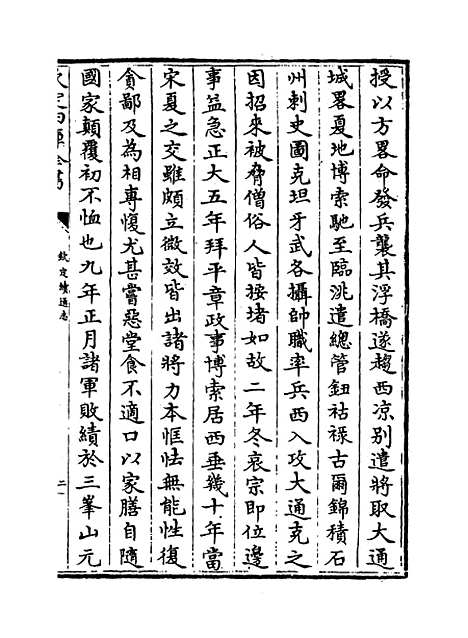 授以方畧命發兵襲其浮橋遂趨西凉别遣將取大通
城畧夏地博索馳至臨洮遣總管鈕祜禄古爾錦積石
州刺史圖克坦牙武各攝帥職率兵西入攻大通克之
因招來被脅僧俗人皆按堵如故二年冬哀宗即位邊
事益急正大五年拜平章政事博索居西垂幾十年當
宋夏之交雖頗立微效皆出諸將力本恇怯無能性復
貪鄙及為相專愎尤甚嘗惡堂食不適口以家膳自隨
國家顛覆初不恤也九年正月諸軍敗績於三峯山元
欽定四庫全書
欽定續通志
二